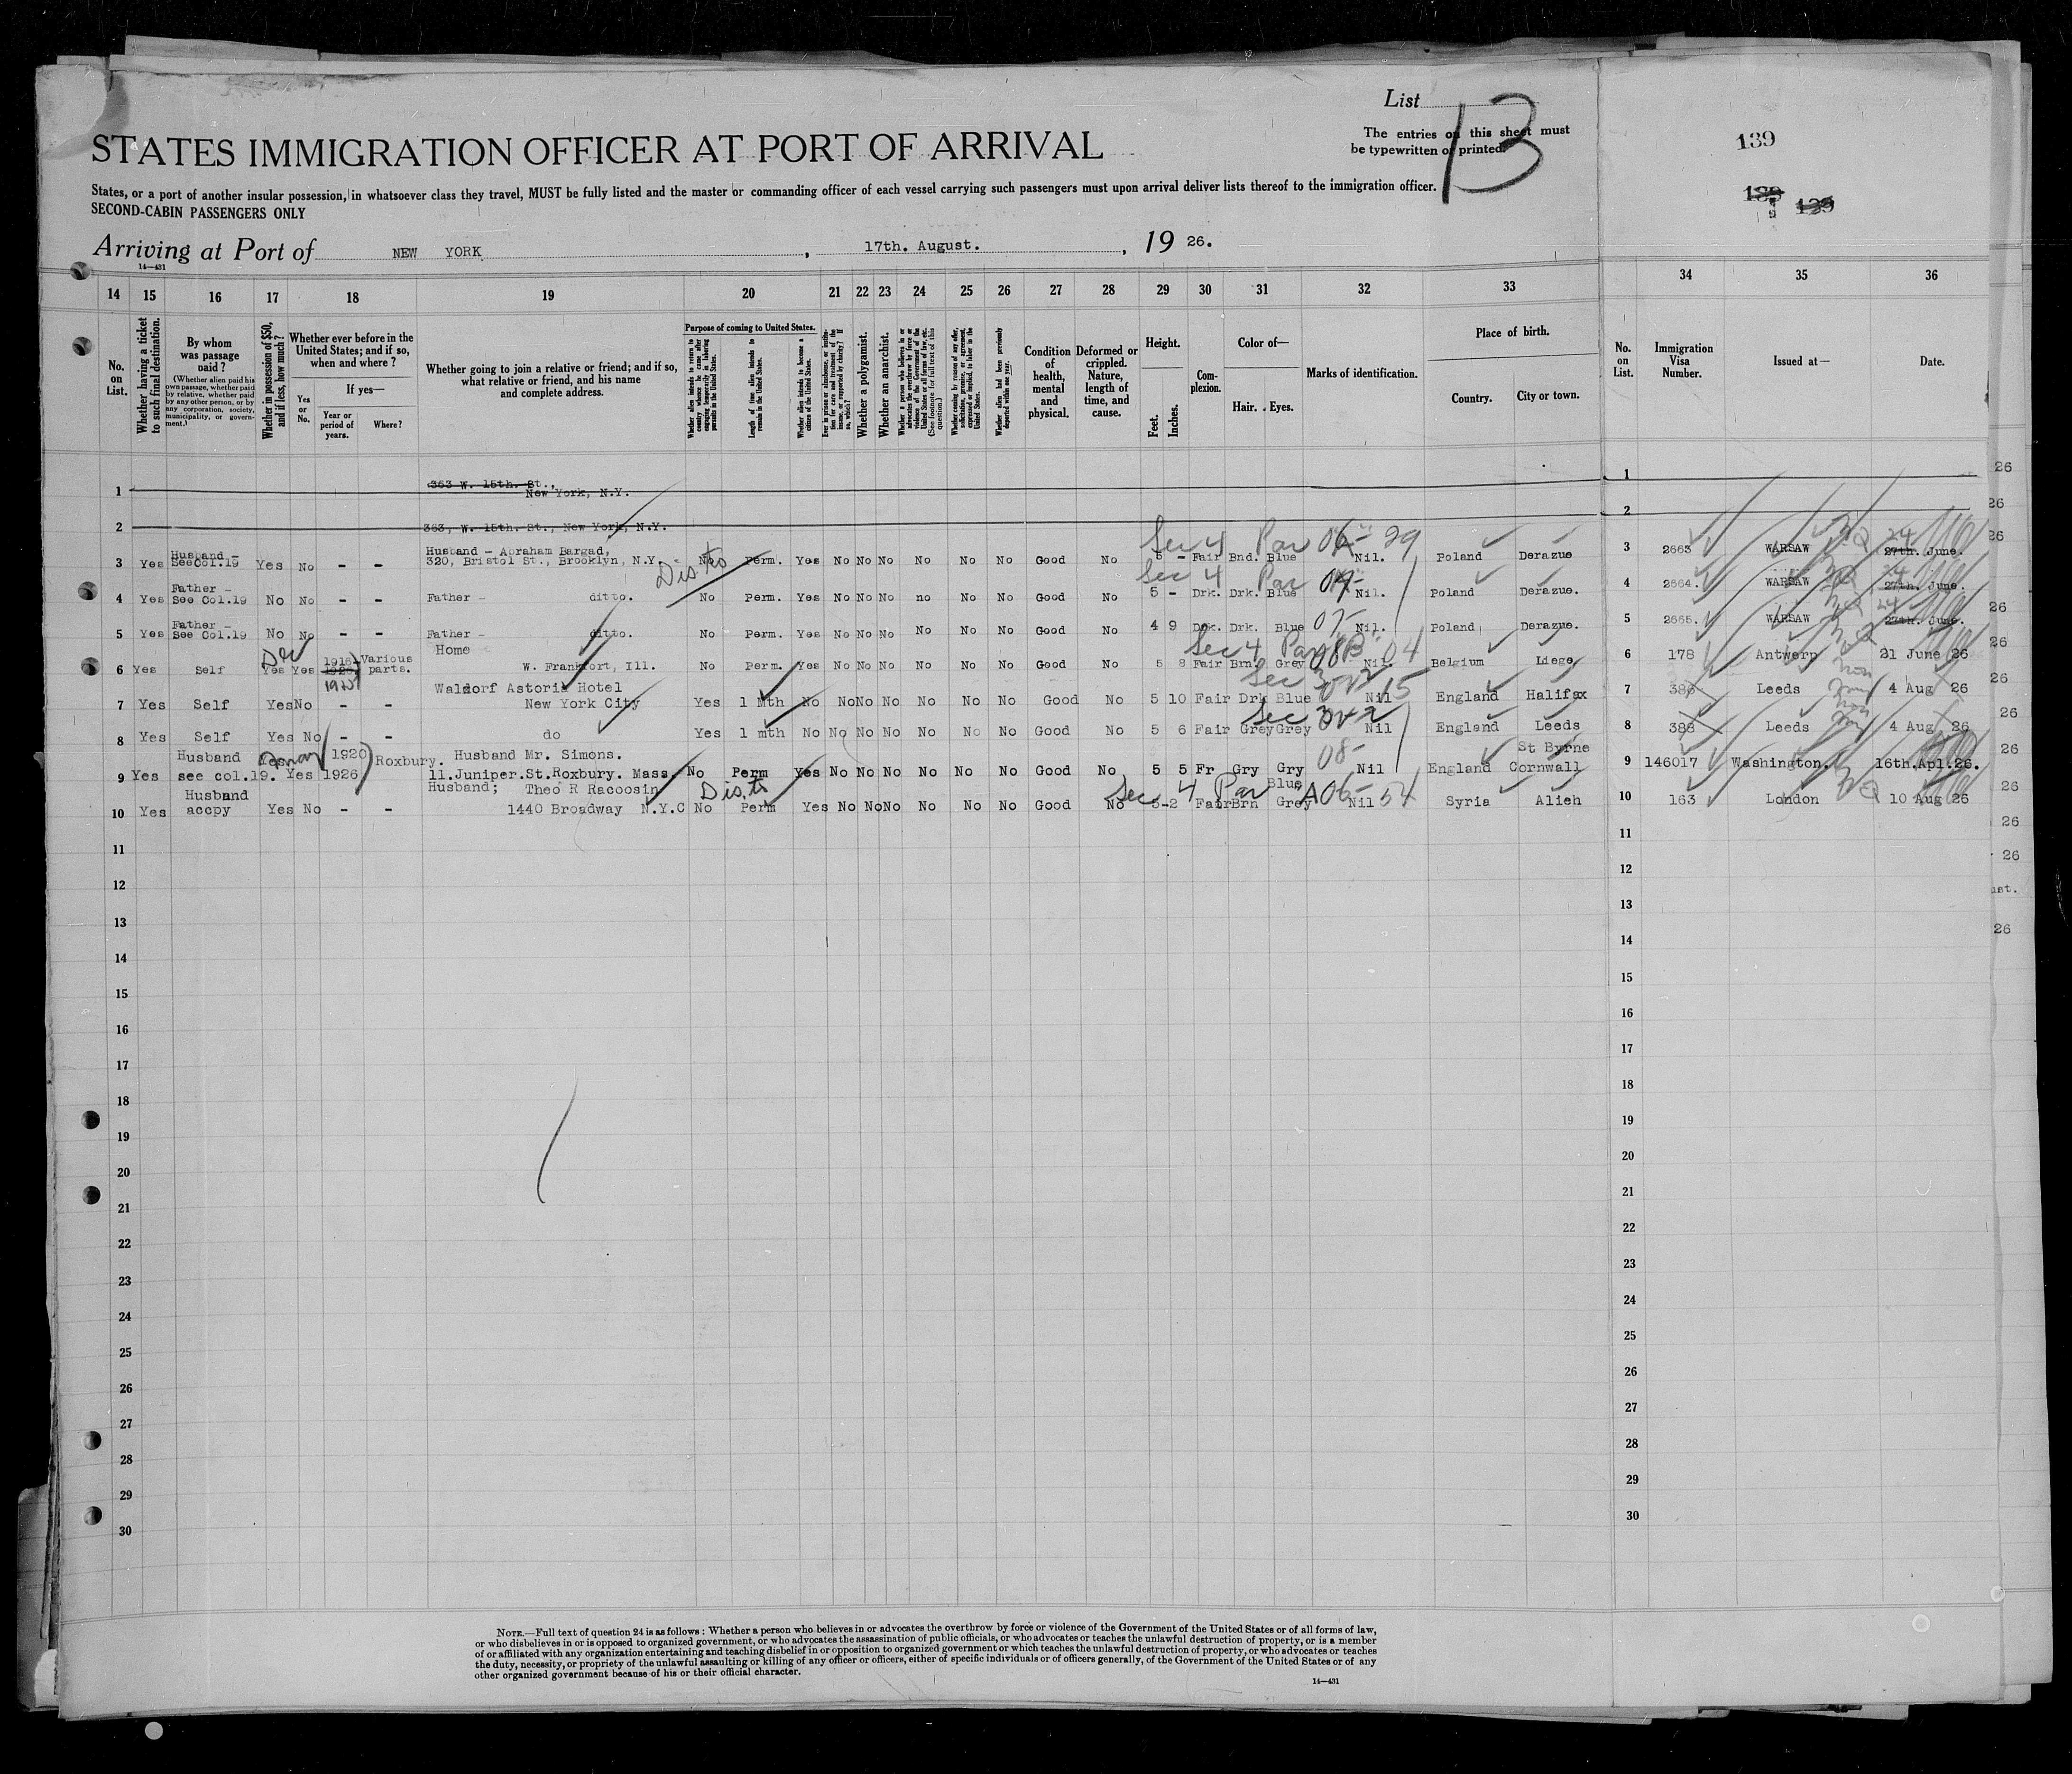 List 13
The entries on this sheet must
be typewritten or printed.
139
STATES IMMIGRATION OFFICER AT PORT OF ARRIVAL
States, or a port of another insular possession, in whatsoever class they travel, MUST be fully listed and the master or commanding officer of each vessel carrying such passengers must upon arrival deliver lists thereof to the immigration officer.
SECOND-CABIN PASSENGERS ONLY
139 139
Arriving at Port of NEW YORK, 17th. August., 19 26.
14—431
14 15 16 17 18 19 20 21 22 23 24 25 26 27 28 29 30 31 32 33 34 35 36
No. on List.
Whether having a ticket to such final destination.
By whom was passage paid?
(Whether alien paid his own passage, whether paid by relative, whether paid by any other person, or by any corporation, society, municipality, or government.)
Whether in possession of $50, and if less, how much?
Whether ever before in the United States; and if so, when and where?
Yes or No.
If yes—
Year or period of years.
Where?
Whether going to join a relative or friend; and if so, what relative or friend, and his name and complete address.
Purpose of coming to United States.
Whether alien intends to return to country whence he came after engaging temporarily in laboring pursuits in the United States.
Length of time alien intends to remain in the United States.
Whether alien intends to become a citizen of the United States.
Ever in prison or almshouse, or institution for care and treatment of the insane, or supported by charity? If so, which?
Whether a polygamist.
Whether an anarchist.
(See footnote for full text of this question.)
Whether coming by reason of any offer, solicitation, promise, or agreement, expressed or implied, to labor in the United States.
Whether alien had been previously deported within one year.
Condition of health, mental and physical.
Deformed or crippled. Nature, length of time, and cause.
Height.
Feet. Inches.
Complexion.
Color of—
Hair. Eyes.
Marks of identification.
Place of birth.
Country. City or town.
No. on List.
Immigration Visa Number.
Issued at—
Date.
1 363 W. 15th. St., New York, N.Y. 1
2 363, W. 15th. St., New York, N.Y. 2
Sec 4 Par 29
3 Yes Husband – See Col.19 Yes No – – Husband – Abraham Bargad, 320, Bristol St., Brooklyn, N.Y. No Perm. Yes No No No No No No Good No 5 – Fair Bnd. Blue Nil. Poland Derazue 3 2663 WARSAW 24 27th. June.
Sec 4 Par
4 Yes Father – See Col.19 No No – – Father – ditto. No Perm. Yes No No No no No No Good No 5 – Drk. Drk. Blue Nil. Poland Derazue. 4 2664. WARSAW 24 27th. June.
07–
5 Yes Father – See Col.19 No No – – Father – ditto. No Perm. Yes No No No No No No Good No 4 9 Drk. Drk. Blue Nil. Poland Derazue. 5 2665. WARSAW 24 27th. June.
Sec 4 Par B 04
6 Yes Self Yes Yes 1916 Various parts. Home W. Frankfort, Ill. No Perm. Yes No No No No No No Good No 5 8 Fair Brn. Grey Nil. Belgium Liege 6 178 Antwerp 21 June 26
Sec 3 15
7 Yes Self Yes No – – Waldorf Astoria Hotel New York City Yes 1 Mth No No No No No No No Good No 5 10 Fair Drk Blue Nil England Halifax 7 386 Leeds 4 Aug 26
Sec 3
8 Yes Self Yes No – – do Yes 1 mth No No No No No No No Good No 5 6 Fair Grey Grey Nil England Leeds 8 388 Leeds 4 Aug 26
08–
9 Yes Husband see col.19. Yes 1920 1926 Roxbury. Husband Mr. Simons. 11.Juniper.St.Roxbury. Mass. No Perm Yes No No No No No No Good No 5 5 Fr Gry Gry Nil England St Byrne Cornwall 9 146017 Washington. 16th.Apl.26.
Sec 4 Par A 54
10 Yes Husband accpy Yes No – – Husband; Theo R Racoosin 1440 Broadway N.Y.C No Perm Yes No No No No No No Good No 5-2 Fair Brn Blue Grey Nil Syria Alieh 10 163 London 10 Aug 26
11 11
12 12
13 13
14 14
15 15
16 16
17 17
18 18
19 19
20 20
21 21
22 22
23 23
24 24
25 25
26 26
27 27
28 28
29 29
30 30
NOTE.—Full text of question 24 is as follows: Whether a person who believes in or advocates the overthrow by force or violence of the Government of the United States or of all forms of law,
or who disbelieves in or is opposed to organized government, or who advocates the assassination of public officials, or who advocates or teaches the unlawful destruction of property, or is a member
of or affiliated with any organization entertaining and teaching disbelief in or opposition to organized government or which teaches the unlawful destruction of property, or who advocates or teaches
the duty, necessity, or propriety of the unlawful assaulting or killing of any officer or officers, either of specific individuals or of officers generally, of the Government of the United States or of any
other organized government because of his or their official character.
14—431